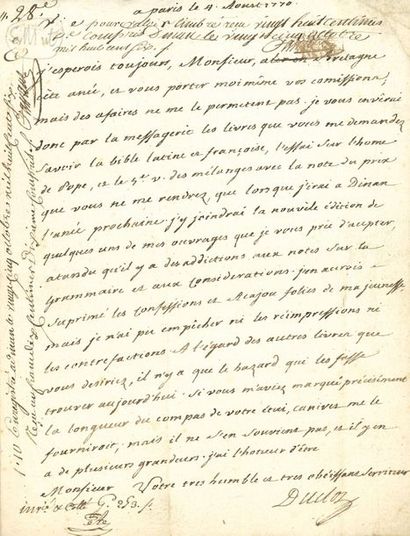 28e
a paris le 4. Aoust 1770.
pour valoir timbre reçu vingt huit centimes
j'esperois toujours, Monsieur, aler en Bretagne
cete anée, et vous porter moi même vos comissions;
mais des afaires ne me le permetent pas. je vous envérai
donc par la messagerie les livres que vous me demandez
savoir la bible latine et françoise, l'essai sur l'home
de Pope, et le 5e. v. des mélanges avec la note du prix
que vous ne me rendrez que lorsque j'irai a Dinan
l'année prochaine. j'y joindrai la nouvele édition de
quelques uns de mes ouvrages que je vous prie d'acepter,
atandu qu'il y a des addictions aux notes sur la
grammaire et aux Considerations. j'en aurois
suprimé les Confessions et Acajou folies de ma jeunesse
mais je n'ai pu empêcher ni les réimpressions ni
les contrefactions. A l'égard des autres livres que
vous desiriez, il n'y a que le hazard qui les fasse
trouver aujourd'hui. Si vous m'aviez marqué précisément
la longueur du compas de votre étui, canivet me le
fourniroit, mais il ne s'en souvient pas, et il y en
a de plusieurs grandeurs. j'ai l'honeur d'être
Monsieur Votre tres humble et tres obéissant serviteur
Duclos